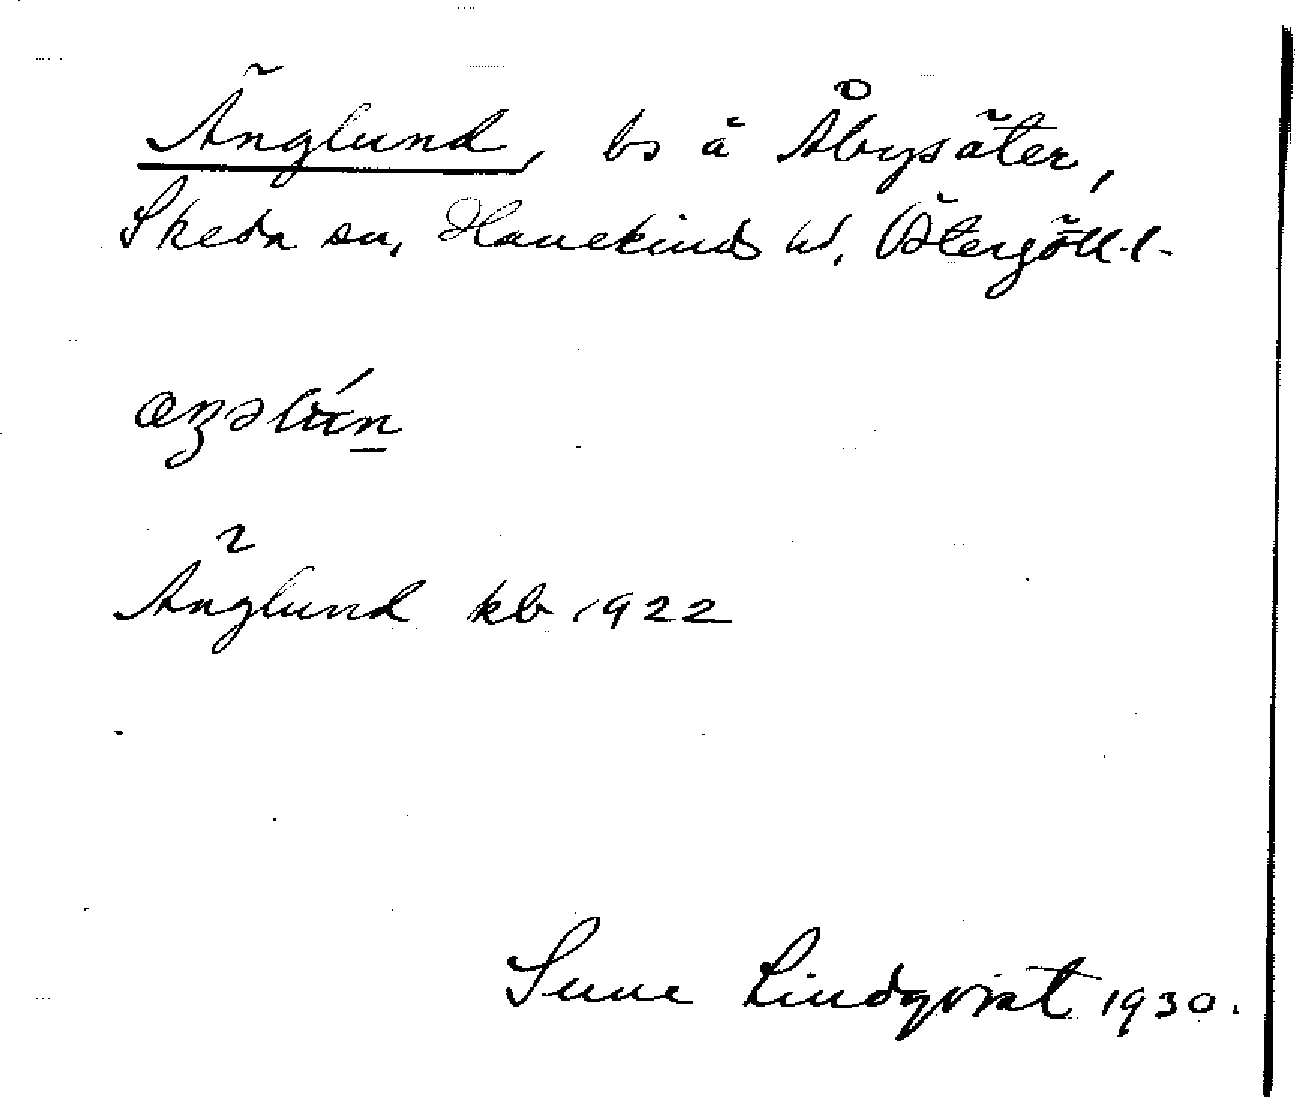 Änglund, bs å Åbysäter,
Skeda sn, Hanekinds hd, Östergötl. l.
Änglund kb 1922
Sune Lindqvist 1930.